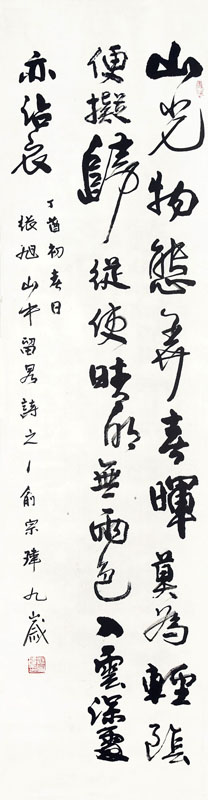 山光物態弄春暉莫為輕陰
便擬歸從使晴明無雨色入雲深處
亦沾衣
丁酉初春日
張旭山中留客詩之一俞宗瑋九歲